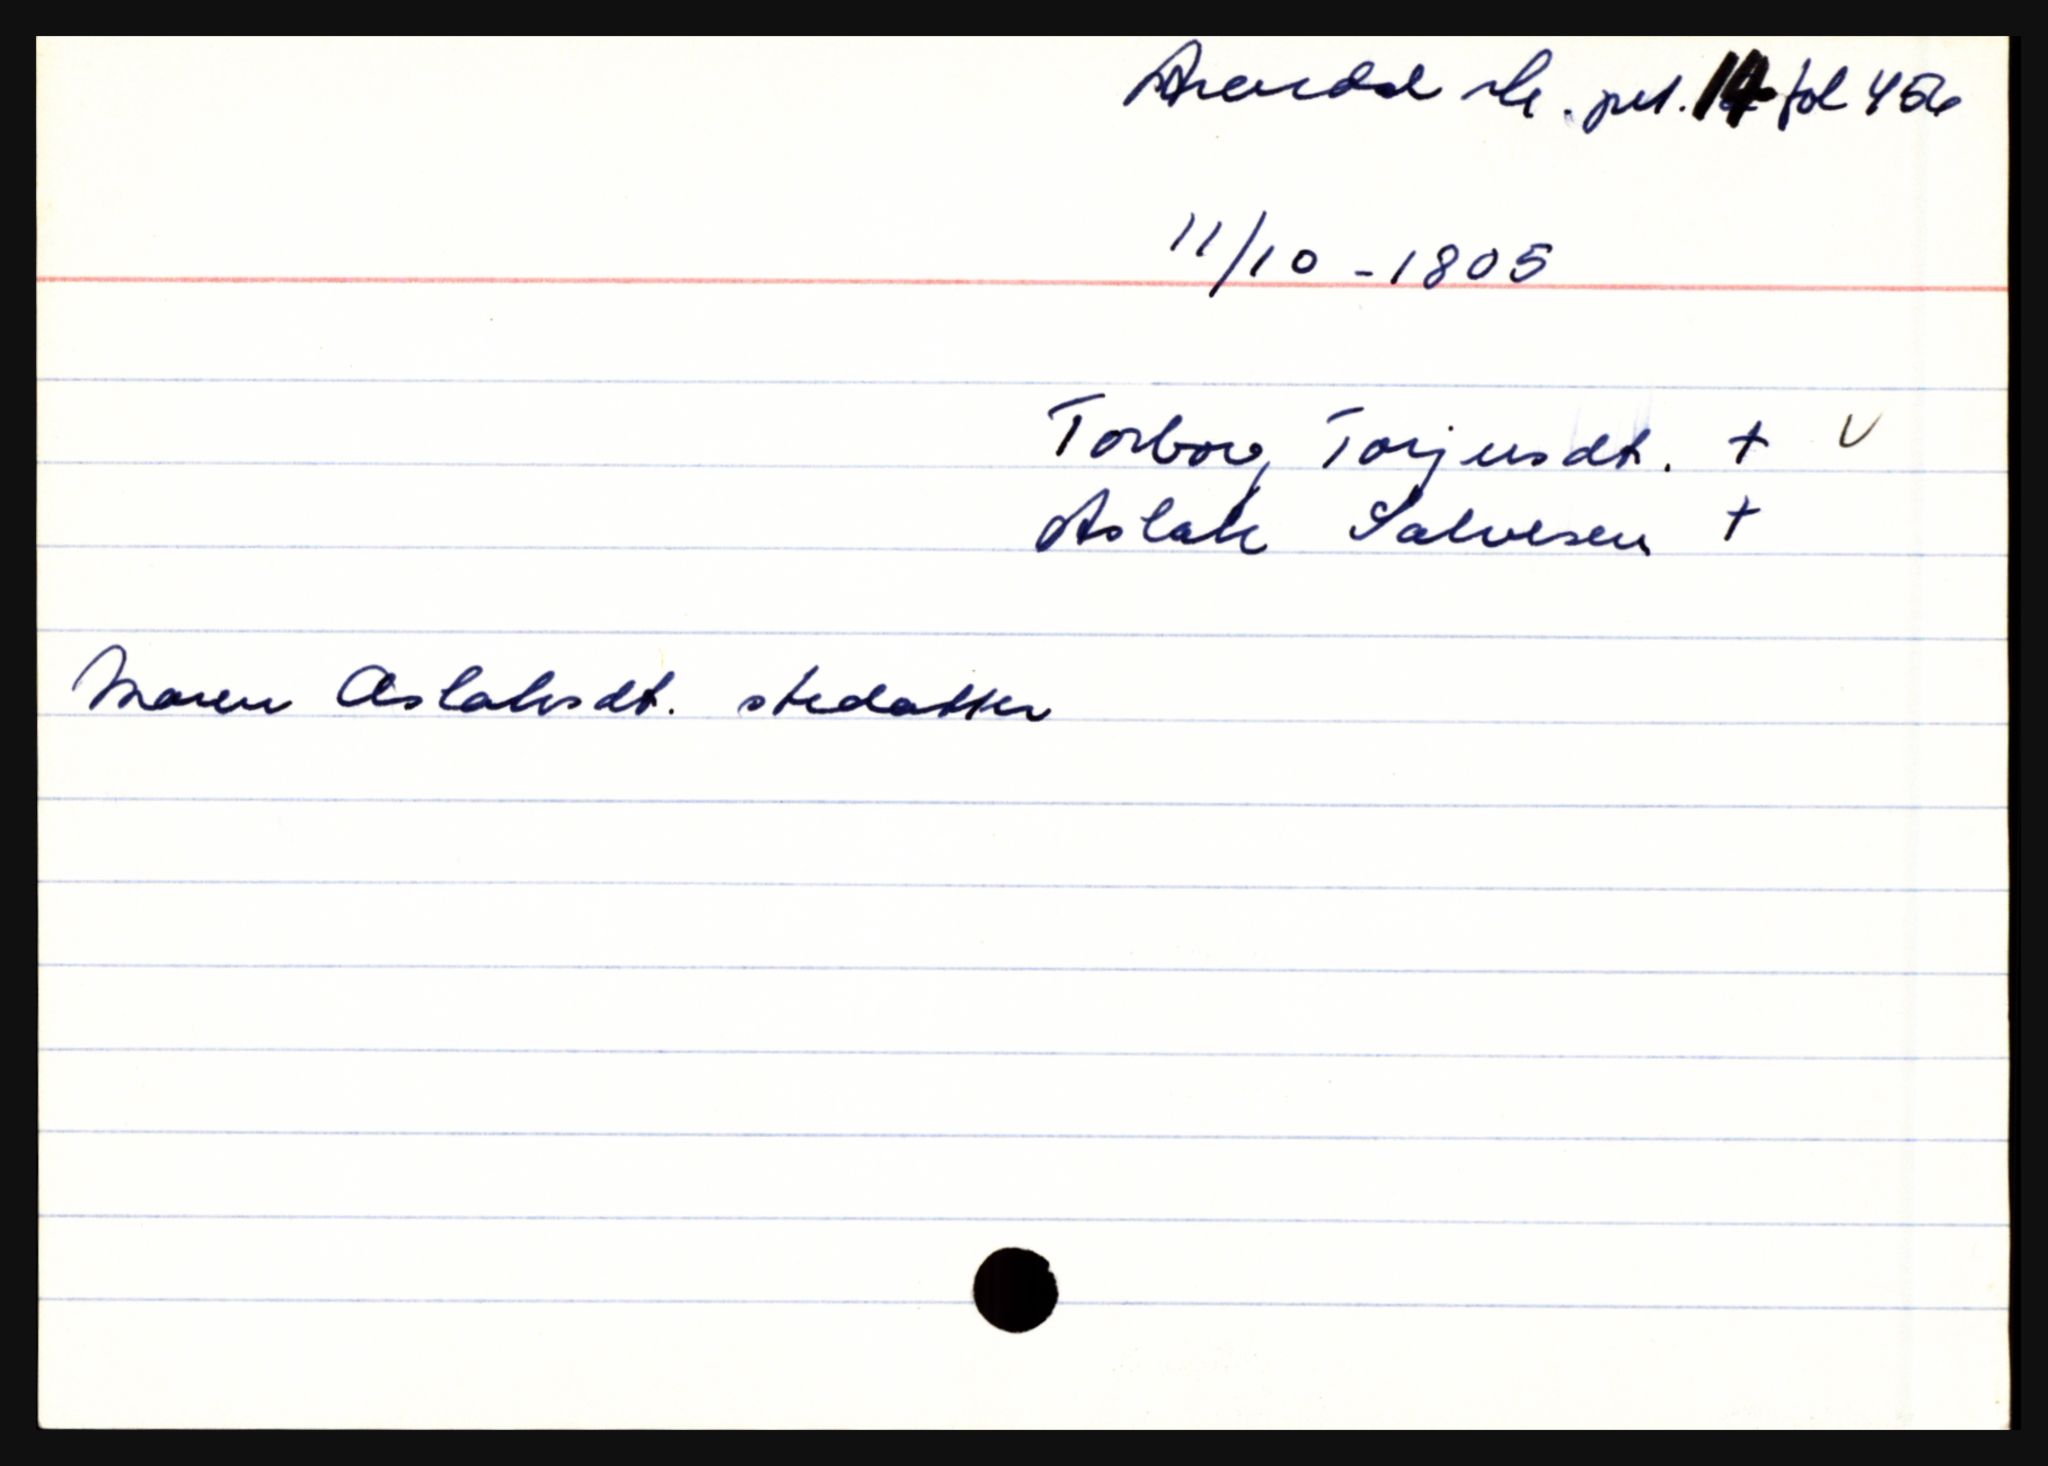 Arendal sk. prot. 14 fol 456
11/10 - 1805
Torborg Torjusdt. + v
Aslak Salvesen +
Maren Aslaksdt. stedatter